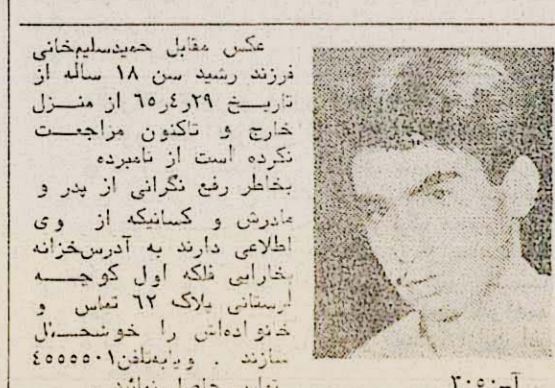 عکس مقابل حمیدسلیمخانی
فرزند رشید سن ۱۸ ساله از
تاریـــخ ۲۹ر٤ر٦٥ از منـــزل
خارج و تاکنون مراجعـــت
نکرده است از نامبرده
بخاطر رفع نگرانی از پدر و
مادرش و کسانیکه از وی
اطلاعی دارند به آدرس‌خزانه
بخارایی فلکه اول کوچـــه
لرستانی پلاک ٦٢ تماس و
خانواده‌اش را خوشحـــال
سازند . ویابه‌تلفن ٤٥٥٥٥٠١
تماس حاصل نمائید
آ-۲۰۵۰۳